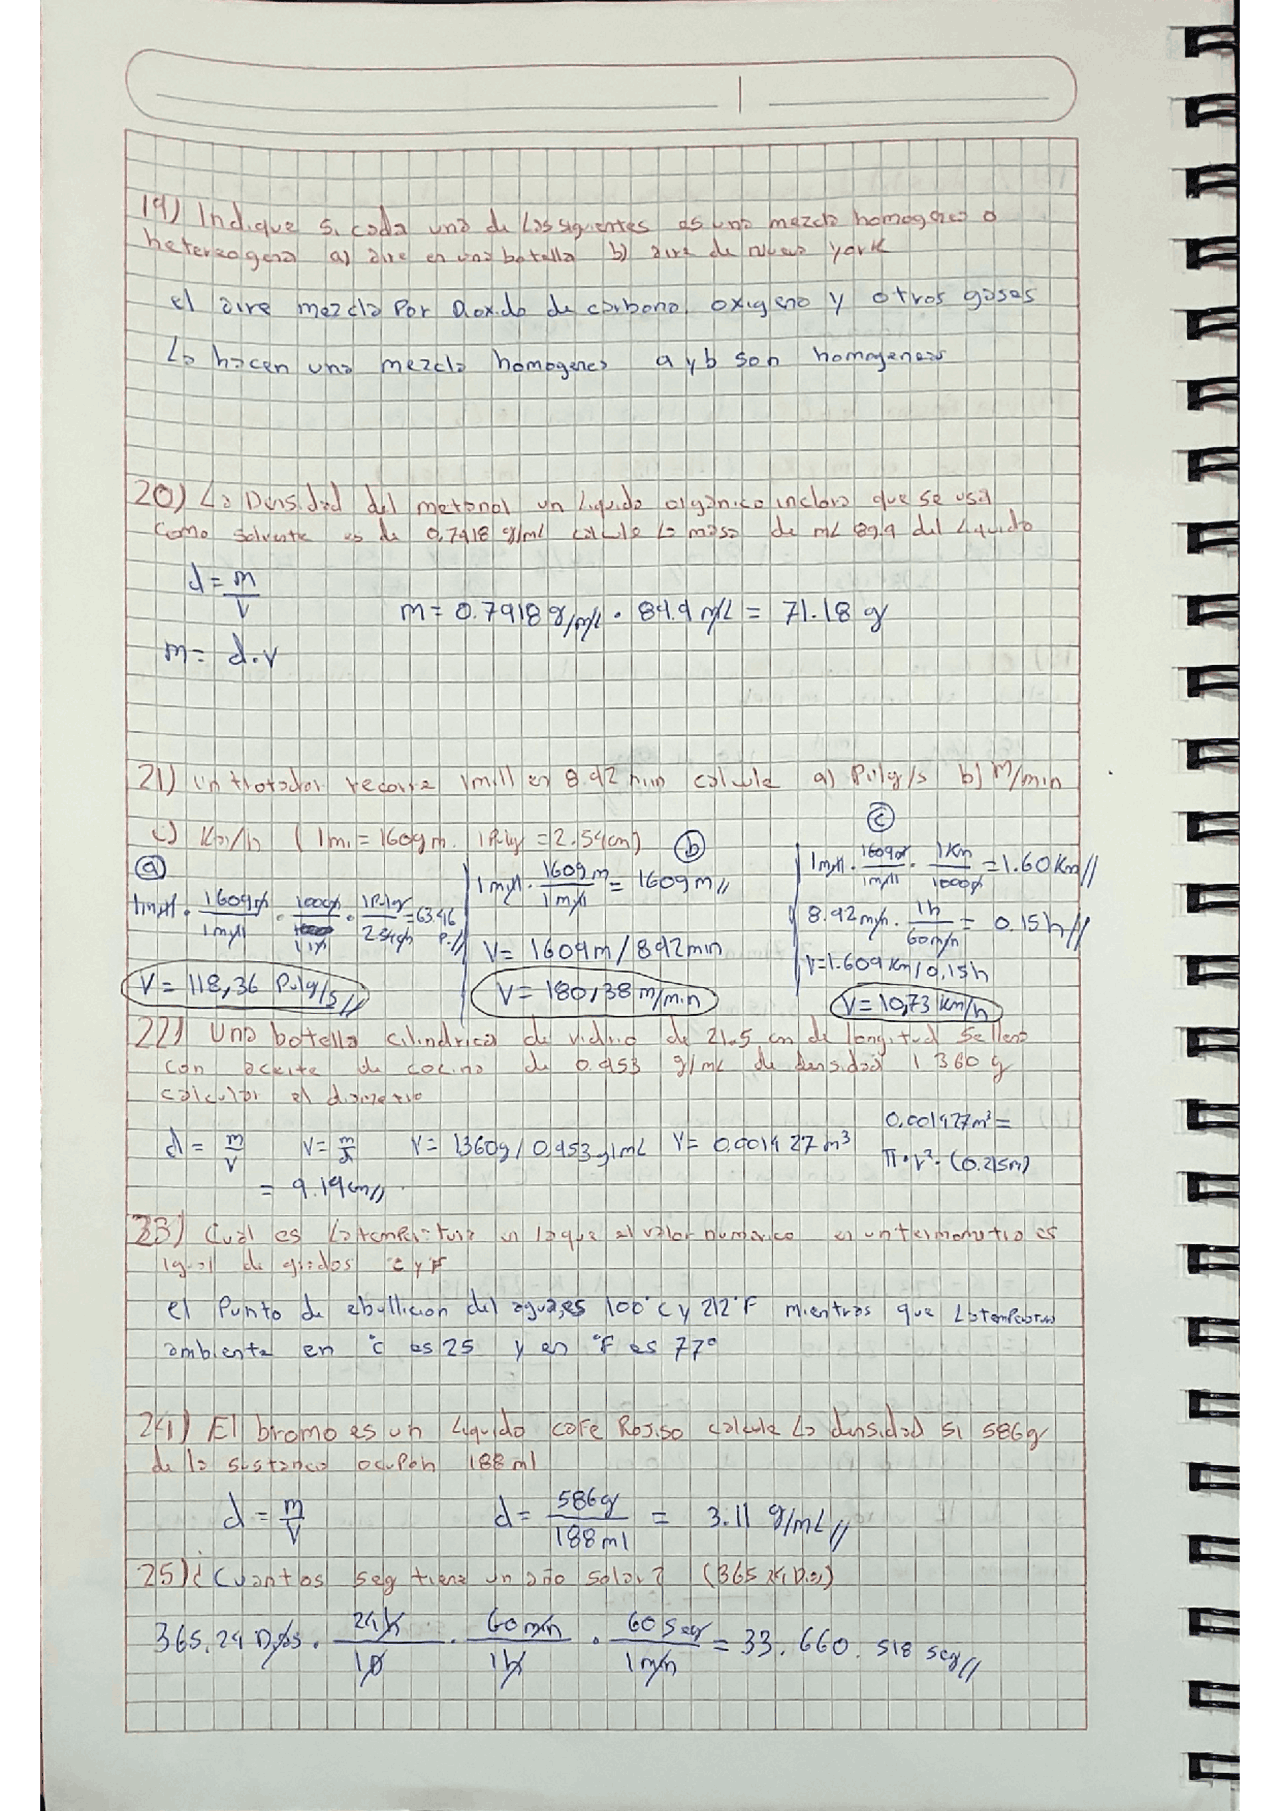 19) Indique si cada una de las siguientes es una mezcla homogenea o
heterogena a) aire en una botella b) aire de nueva york
el aire mezcla por Dioxido de carbono, oxigeno y otros gases
La hacen una mezcla homogenea a y b son homogeneas
20) La Densidad del metanol un Liquido organico incloro que se usa
como solvente es de 0,7918 g/ml calcule La masa de mL 89.9 del Liquido
d = m/V
m = 0.7918 g/ml . 89.9 mL = 71.18 g
m = d.v
21) un trotador recorre 1mill en 8.92 min calcule a) Pulg/s b) M/min
c) Km/h ( 1mi = 1609m. 1Pulg = 2.54cm)
a
1mill . 1609m/1mill . 100cm/1m . 1Pulg/2.54cm = 63.346 P.//
V = 118,36 Pulg/s //
b
1mill . 1609m/1mill = 1609m //
V = 1609m / 8.92min
V = 180,38 m/min
c
1mill . 1609m/1mill . 1Km/1000m = 1.60 Km//
8.92min . 1h/60min = 0.15h//
V = 1.609 Km / 0,15h
V = 10,73 Km/h
22) Una botella cilindrica de vidrio de 21.5 cm de longitud se lleno
con aceite de cocina de 0.953 g/mL de densidad 1 360 g
calcular el diametro
d = m/V V = m/d V = 1360g / 0,953 g/mL V = 0.001427 m³
0.001427m³ =
π . r² . (0.215m)
= 9.19cm//
23) Cual es La temperatura en la que el valor numerico en un termometro es
igual de grados C y F
el Punto de ebullicion del agua, es 100°C y 212°F mientras que La temperatura
ambiente en °C es 25 y en °F es 77°
24) El bromo es un Liquido cafe Rojiso calcule La densidad si 586g
de la sustancia ocupan 188 ml
d = m/V d = 586g/188ml = 3.11 g/mL //
25) ¿Cuantos seg tiene un año solar? (365.24 Dias)
365.24 Dias . 24h/1D . 60min/1h . 60 Seg/1min = 33.660.518 seg//